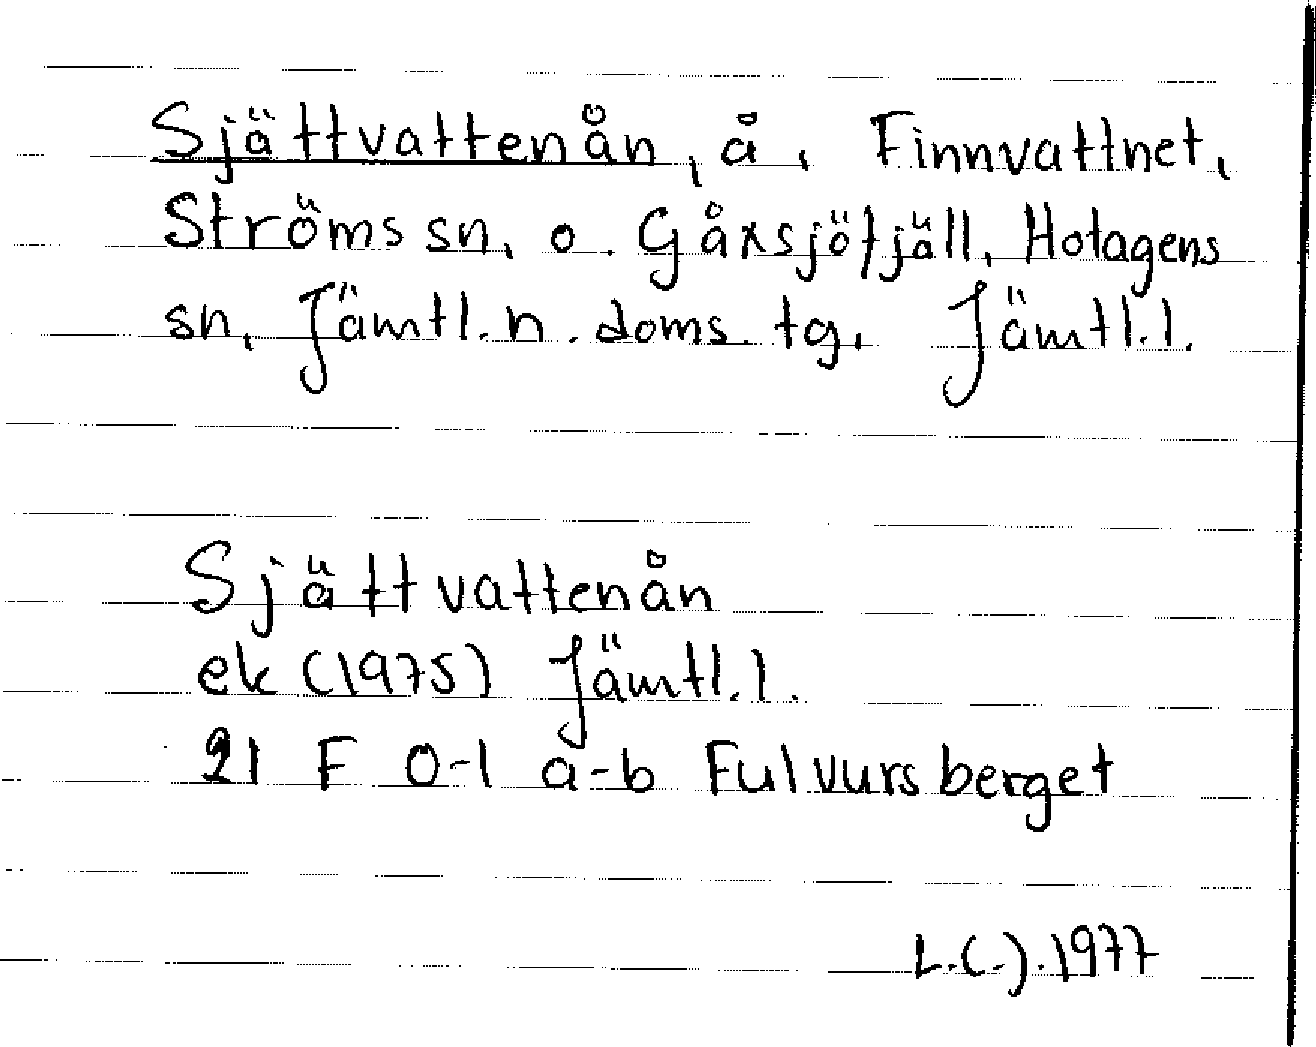 Sjättvattenån, å, Finnvattnet,
Ströms sn, o. Gåxsjöfjäll, Hotagens
sn, Jämtl. n. doms. tg, Jämtl. l.
Sjättvattenån
ek (1975) Jämtl. l.
21 F 0-1 a-b Fulvursberget
L.C.J. 1977